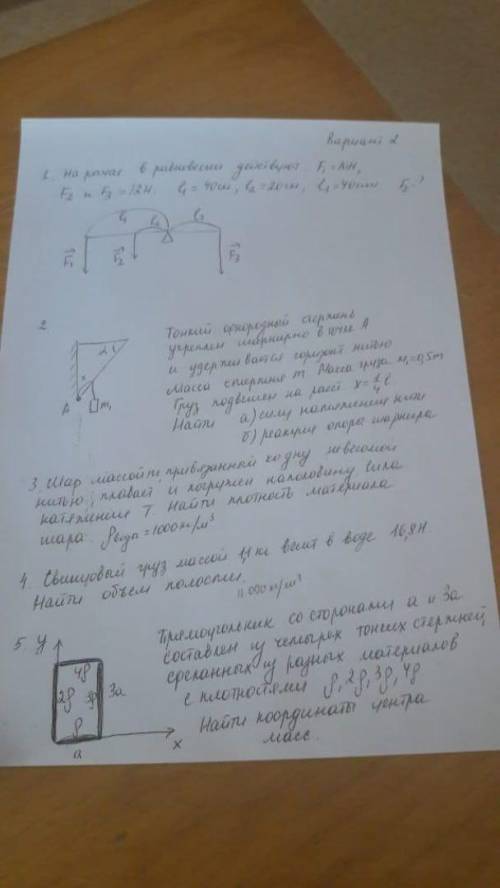 Вариант 2
1. На рычаг в равновесии действуют F₁=
F₂ и F₃=12Н. l₁=40см, l₂=20см, l₃=40см F₂-?
l₁ l₂ l₃
F₁ F₂ F₃
2
α l
x
A m₁
Тонкий однородный стержень
укреплен шарнирно в точке А
и удерживается горизонт нитью
Масса стержня m. Масса груза m₁=0,5m
Груз подвешен на расст x=1/4 l.
Найти а) силу натяжения нити
б) реакцию опоры шарнира
3. Шар массой привязанный ко дну невесомой
нитью, плавает и погружен наполовину. Сила
натяжения T. Найти плотность материала
шара. ρводы=1000кг/м³
4. Свинцовый груз массой кг весит в воде 16,8Н.
Найти объем полости.
11000кг/м³
5. y
4ρ
2ρ 3ρ 3a
ρ
a x
Прямоугольник со сторонами a и 3a
составлен из четырех тонких стержней
сделанных из разных материалов
с плотностями ρ, 2ρ, 3ρ, 4ρ
Найти координаты центра
масс.